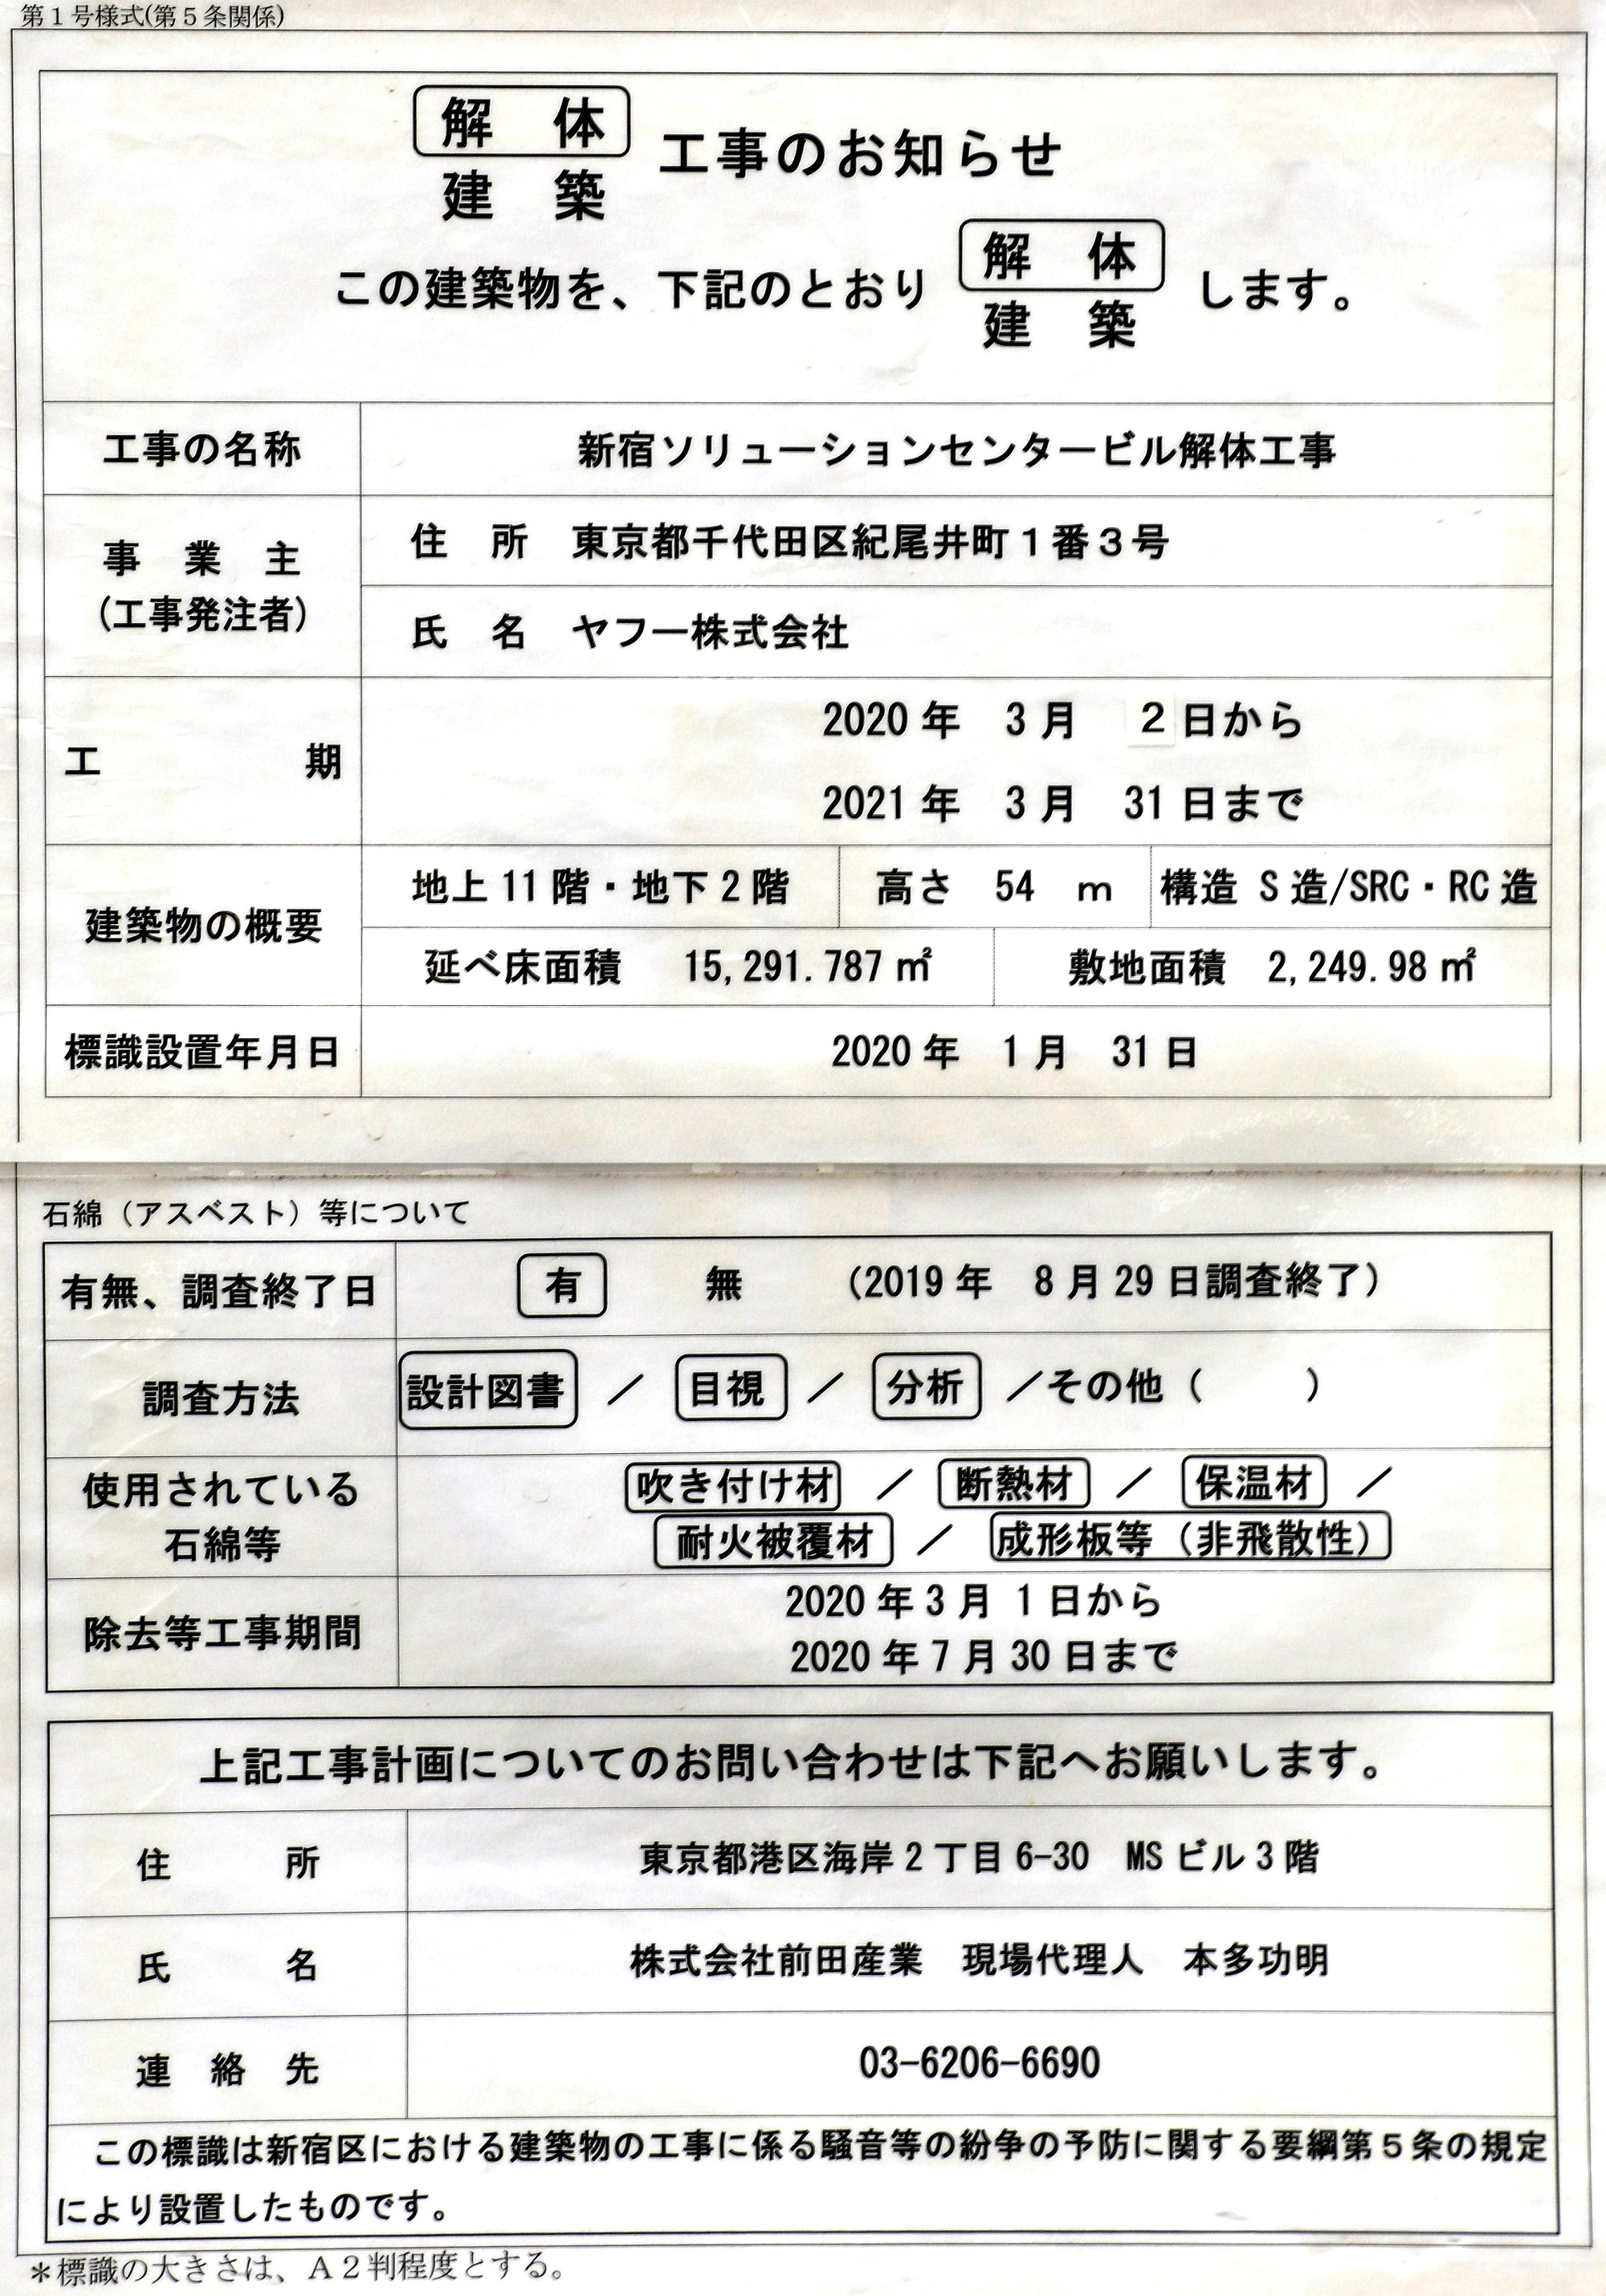 第１号様式(第５条関係)
解　体
建　築
工事のお知らせ
この建築物を、下記のとおり
解　体
建　築
します。
工事の名称　新宿ソリューションセンタービル解体工事
事　業　主
(工事発注者)
住　所　東京都千代田区紀尾井町１番３号
氏　名　ヤフー株式会社
工　　　期
2020 年　3 月　2 日から
2021 年　3 月　31 日まで
建築物の概要
地上 11 階・地下 2 階　高さ　54　m　構造 S 造/SRC・RC 造
延べ床面積　15,291.787 ㎡　敷地面積　2,249.98 ㎡
標識設置年月日　2020 年　1 月　31 日
石綿（アスベスト）等について
有無、調査終了日　有　無　（2019 年　8 月 29 日調査終了）
調査方法　設計図書　／　目視　／　分析　／その他（　　　）
使用されている
石綿等
吹き付け材　／　断熱材　／　保温材　／
耐火被覆材　／　成形板等（非飛散性）
除去等工事期間
2020 年 3 月 1 日から
2020 年 7 月 30 日まで
上記工事計画についてのお問い合わせは下記へお願いします。
住　　所　東京都港区海岸 2 丁目 6-30　MS ビル 3 階
氏　　名　株式会社前田産業　現場代理人　本多功明
連　絡　先　03-6206-6690
この標識は新宿区における建築物の工事に係る騒音等の紛争の予防に関する要綱第５条の規定
により設置したものです。
＊標識の大きさは、Ａ２判程度とする。